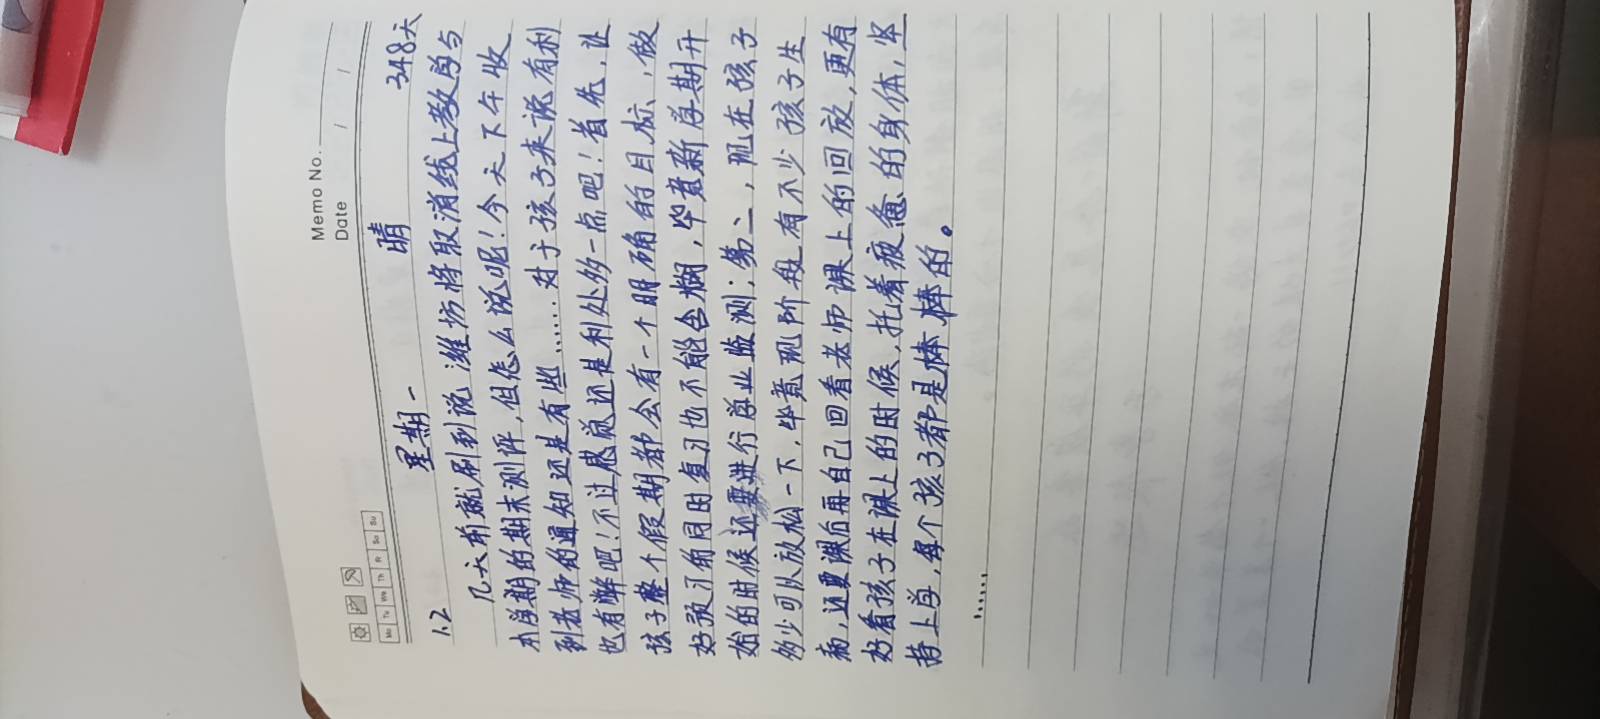 Memo No.
Mo Tu We Th Fr Sa Su
Date / /
1.2 星期一 晴 348天
几天前就刷到说潍坊将取消线上教学与
本学期的期末测评，但怎么说呢！今天下午收
到老师的通知还是有些……对于孩子来说有利
也有弊吧！不过感觉还是利处多一点吧！首先，让
孩子整个假期都会有一个明确的目标，做
好预习的同时复习也不能含糊，毕竟新学期开
始的时候还要进行学业监测；第二，现在孩子
多少可以放松一下，毕竟现阶段有不少孩子生
病，还要课后再自己回看老师课上的回放，更有
好着孩子在课上的时候，托着疲惫的身体，坚
持上学，每个孩子都是棒棒的。
……